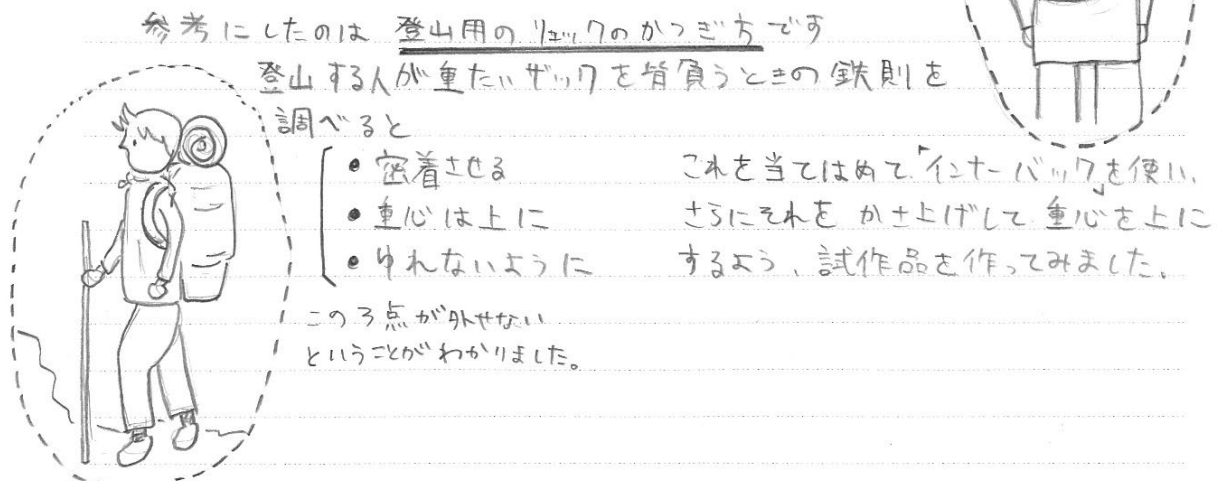 参考にしたのは 登山用のリュックのかつぎ方です
登山する人が重たいザックを背負うときの鉄則を
調べると
• 密着させる
• 重心は上に
• ゆれないように
この3点が外せない
ということがわかりました。
これを当てはめて「インナーバック」を使い、
さらにそれを かさ上げして 重心を上に
するよう、試作品を作ってみました。